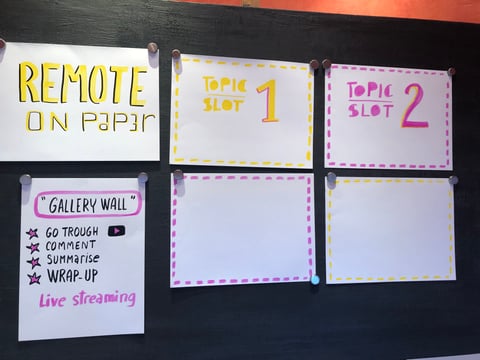 REMOTE
ON PaPER
TOPIC
SLOT 1
TOPIC
SLOT 2
"GALLERY WALL"
GO TROUGH
COMMENT
SUMMARISE
WRAP-UP
Live streaming